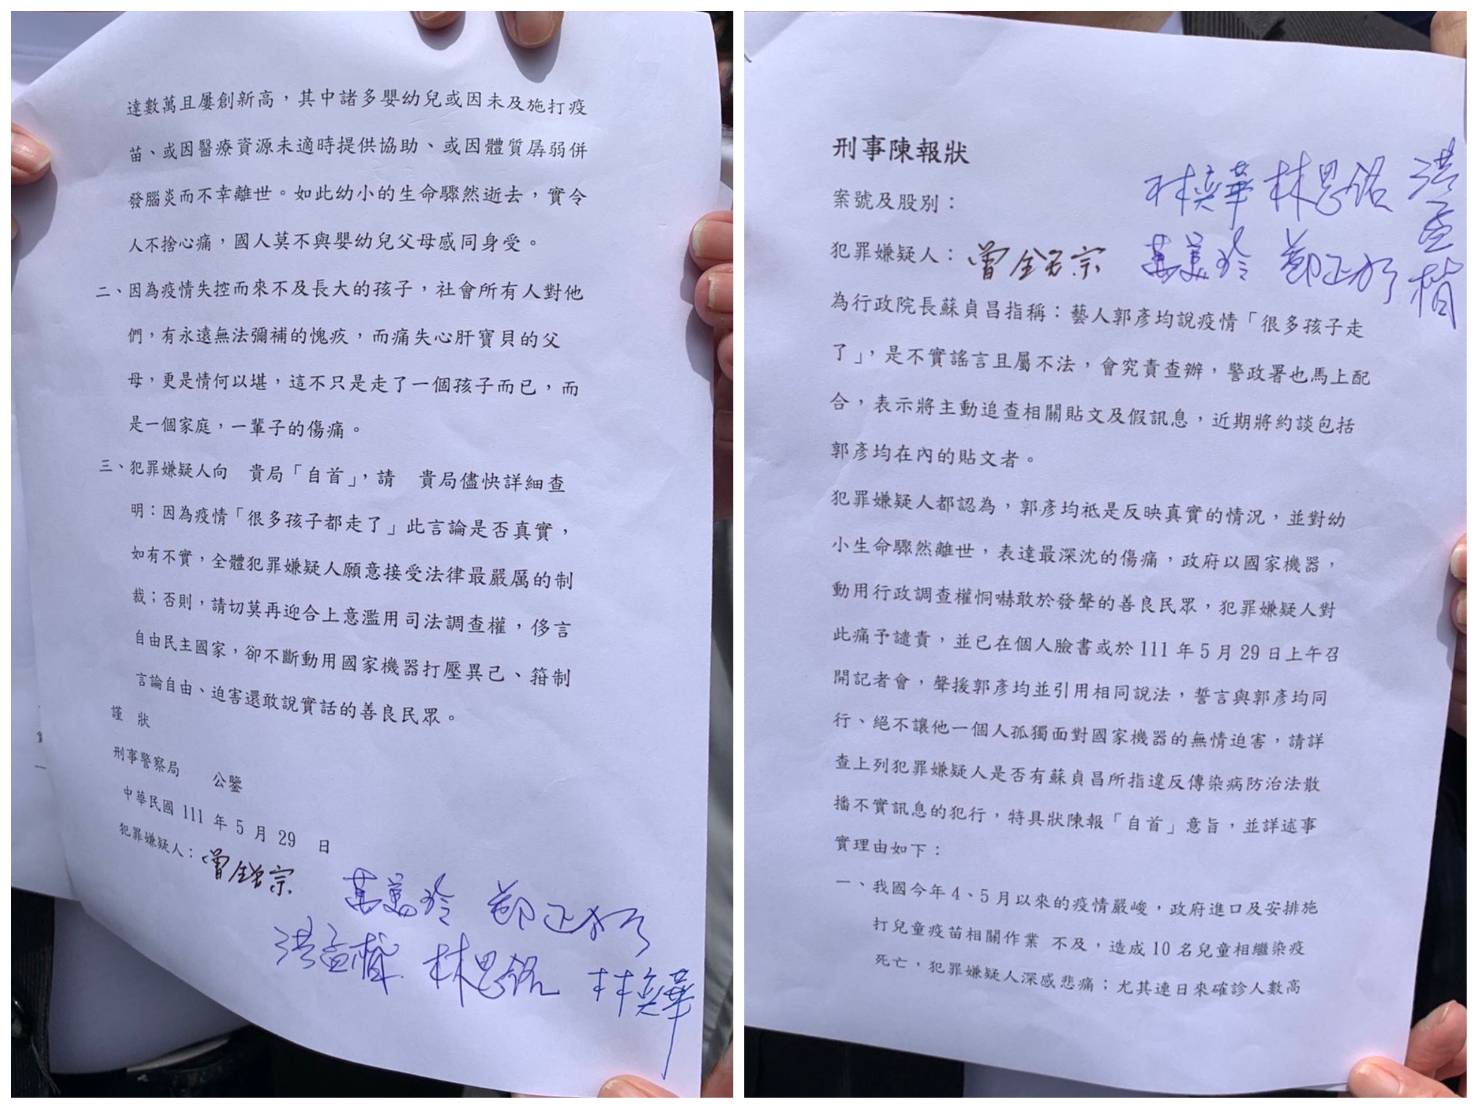 刑事陳報狀
林奕華 林思銘 洪孟楷
案號及股別：
犯罪嫌疑人：曾銘宗 萬美玲 鄭正鈐
為行政院長蘇貞昌指稱：藝人郭彥均說疫情「很多孩子走
了」，是不實謠言且屬不法，會究責查辦，警政署也馬上配
合，表示將主動追查相關貼文及假訊息，近期將約談包括
郭彥均在內的貼文者。
犯罪嫌疑人都認為，郭彥均祇是反映真實的情況，並對幼
小生命驟然離世，表達最深沈的傷痛，政府以國家機器，
動用行政調查權恫嚇敢於發聲的善良民眾，犯罪嫌疑人對
此痛予譴責，並已在個人臉書或於 111 年 5 月 29 日上午召
開記者會，聲援郭彥均並引用相同說法，誓言與郭彥均同
行、絕不讓他一個人孤獨面對國家機器的無情迫害，請詳
查上列犯罪嫌疑人是否有蘇貞昌所指違反傳染病防治法散
播不實訊息的犯行，特具狀陳報「自首」意旨，並詳述事
實理由如下：
一、我國今年 4、5 月以來的疫情嚴峻，政府進口及安排施
打兒童疫苗相關作業 不及，造成 10 名兒童相繼染疫
死亡，犯罪嫌疑人深感悲痛；尤其連日來確診人數高
達數萬且屢創新高，其中諸多嬰幼兒或因未及施打疫
苗、或因醫療資源未適時提供協助、或因體質孱弱併
發腦炎而不幸離世。如此幼小的生命驟然逝去，實令
人不捨心痛，國人莫不與嬰幼兒父母感同身受。
二、因為疫情失控而來不及長大的孩子，社會所有人對他
們，有永遠無法彌補的愧疚，而痛失心肝寶貝的父
母，更是情何以堪，這不只是走了一個孩子而已，而
是一個家庭，一輩子的傷痛。
三、犯罪嫌疑人向 貴局「自首」，請 貴局儘快詳細查
明：因為疫情「很多孩子都走了」此言論是否真實，
如有不實，全體犯罪嫌疑人願意接受法律最嚴厲的制
裁；否則，請切莫再迎合上意濫用司法調查權，侈言
自由民主國家，卻不斷動用國家機器打壓異己、箝制
言論自由、迫害還敢說實話的善良民眾。
謹 狀
刑事警察局 公鑒
中華民國 111 年 5 月 29 日
犯罪嫌疑人：曾銘宗 萬美玲 鄭正鈐
洪孟楷 林思銘 林奕華